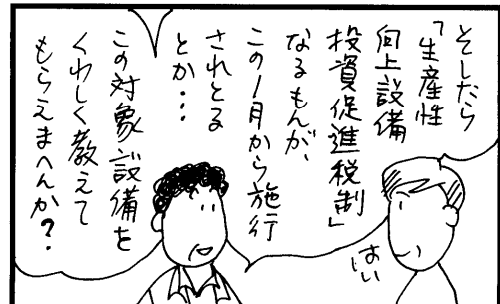 そしたら
「生産性
向上設備
投資促進税制」
なるもんが、
この1月から施行
されとる
とか・・・
この対象設備を
くわしく教えて
もらえまへんか?
はい